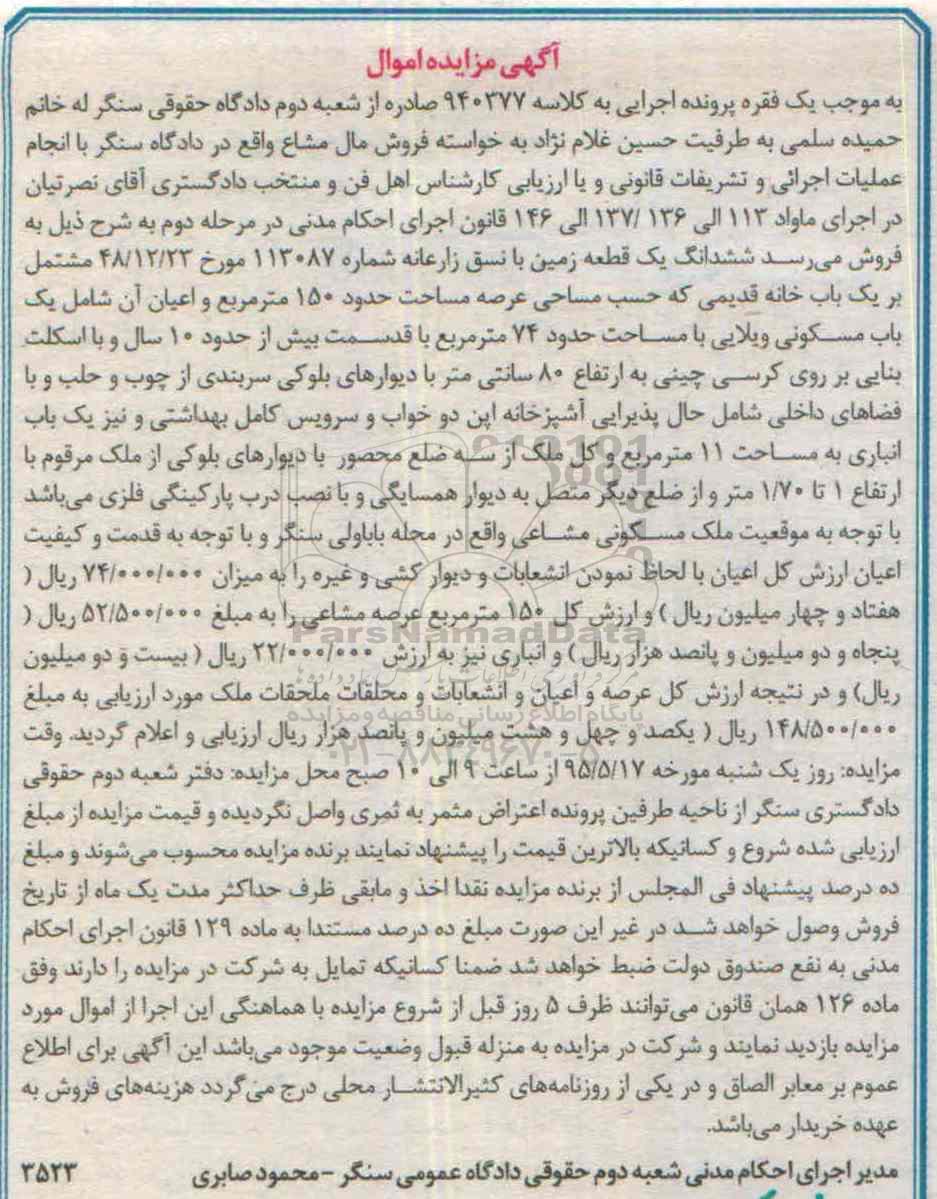 آگهی مزایده اموال
به موجب یک فقره پرونده اجرایی به کلاسه ۹۴۰۳۷۷ صادره از شعبه دوم دادگاه حقوقی سنگر له خانم
حمیده سلمی به طرفیت حسین غلام نژاد به خواسته فروش مال مشاع واقع در دادگاه سنگر با انجام
عملیات اجرائی و تشریفات قانونی و یا ارزیابی کارشناس اهل فن و منتخب دادگستری آقای نصرتیان
در اجرای ماواد ۱۱۳ الی ۱۳۶ /۱۳۷ الی ۱۴۶ قانون اجرای احکام مدنی در مرحله دوم به شرح ذیل به
فروش می‌رسد ششدانگ یک قطعه زمین با نسق زارعانه شماره ۱۱۳۰۸۷ مورخ ۴۸/۱۲/۲۳ مشتمل
بر یک باب خانه قدیمی که حسب مساحی عرصه مساحت حدود ۱۵۰ مترمربع و اعیان آن شامل یک
باب مسکونی ویلایی با مساحت حدود ۷۴ مترمربع با قدسمت بیش از حدود ۱۰ سال و با اسکلت
بنایی بر روی کرسی چینی به ارتفاع ۸۰ سانتی متر با دیوارهای بلوکی سربندی از چوب و حلب و با
فضاهای داخلی شامل حال پذیرایی آشپزخانه اپن دو خواب و سرویس کامل بهداشتی و نیز یک باب
انباری به مساحت ۱۱ مترمربع و کل ملک از سه ضلع محصور با دیوارهای بلوکی از ملک مرقوم با
ارتفاع ۱ تا ۱/۷۰ متر و از ضلع دیگر متصل به دیوار همسایگی و با نصب درب پارکینگی فلزی می‌باشد
با توجه به موقعیت ملک مسکونی مشاعی واقع در محله باباولی سنگر و با توجه به قدمت و کیفیت
اعیان ارزش کل اعیان با لحاظ نمودن انشعابات و دیوار کشی و غیره را به میزان ۷۴/۰۰۰/۰۰۰ ریال (
هفتاد و چهار میلیون ریال ) و ارزش کل ۱۵۰ مترمربع عرصه مشاعی را به مبلغ ۵۲/۵۰۰/۰۰۰ ریال (
پنجاه و دو میلیون و پانصد هزار ریال ) و انباری نیز به ارزش ۲۲/۰۰۰/۰۰۰ ریال ( بیست و دو میلیون
ریال) و در نتیجه ارزش کل عرصه و اعیان و انشعابات و محلقات ملحقات ملک مورد ارزیابی به مبلغ
۱۴۸/۵۰۰/۰۰۰ ریال ( یکصد و چهل و هشت میلیون و پانصد هزار ریال ارزیابی و اعلام گردید. وقت
مزایده: روز یک شنبه مورخه ۹۵/۵/۱۷ از ساعت ۹ الی ۱۰ صبح محل مزایده: دفتر شعبه دوم حقوقی
دادگستری سنگر از ناحیه طرفین پرونده اعتراض مثمر به ثمری واصل نگردیده و قیمت مزایده از مبلغ
ارزیابی شده شروع و کسانیکه بالاترین قیمت را پیشنهاد نمایند برنده مزایده محسوب می‌شوند و مبلغ
ده درصد پیشنهاد فی المجلس از برنده مزایده نقدا اخذ و مابقی ظرف حداکثر مدت یک ماه از تاریخ
فروش وصول خواهد شد در غیر این صورت مبلغ ده درصد مستندا به ماده ۱۲۹ قانون اجرای احکام
مدنی به نفع صندوق دولت ضبط خواهد شد ضمنا کسانیکه تمایل به شرکت در مزایده را دارند وفق
ماده ۱۲۶ همان قانون می‌توانند ظرف ۵ روز قبل از شروع مزایده با هماهنگی این اجرا از اموال مورد
مزایده بازدید نمایند و شرکت در مزایده به منزله قبول وضعیت موجود می‌باشد این آگهی برای اطلاع
عموم بر معابر الصاق و در یکی از روزنامه‌های کثیرالانتشار محلی درج می‌گردد هزینه‌های فروش به
عهده خریدار می‌باشد.
مدیر اجرای احکام مدنی شعبه دوم حقوقی دادگاه عمومی سنگر - محمود صابری ۳۵۲۳
ParsNamadData
پایگاه اطلاع رسانی مناقصه و مزایده